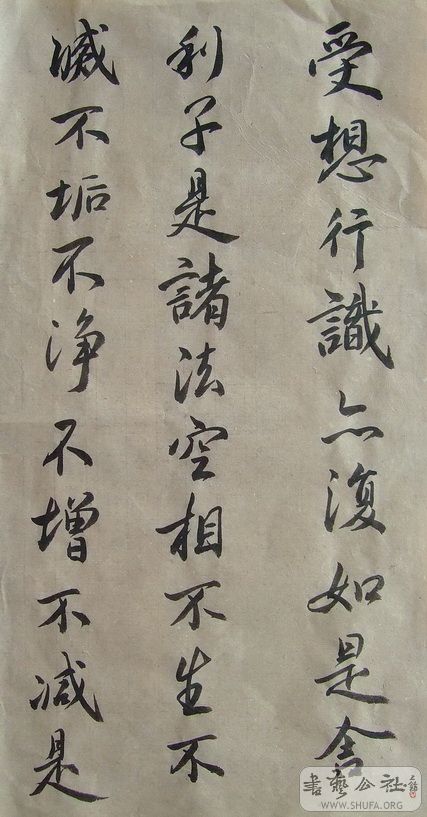 受想行識亦復如是舍
利子是諸法空相不生不
滅不垢不浄不增不減是
書藝公社
WWW.SHUFA.ORG